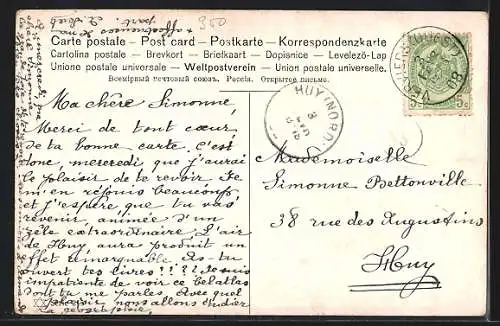 Carte postale - Post card - Postkarte - Korrespondenzkarte
Cartolina postale - Brevkort - Briefkaart - Dopisnice - Levelező-Lap
Unione postale universale - Weltpostverein - Union postale universelle.
Всемірный почтовый союзъ. Россія. Открытое письмо.
350
HUY (NORD)
VERVIERS (OUEST)
08
5c 5c
Ma chère Simonne,
Merci de tout cœur
de ta bonne carte. C'est
donc, mercredi que j'aurai
le plaisir de te revoir. Je
m'en réjouis beaucoup
et j'espère que tu vas
revenir, animée d'un
zèle extraordinaire. L'air
de Huy, aura produit un
effet remarquable. As-tu
ouvert tes livres?!!? Je suis
impatiente de voir ce bel atlas
dont tu me parles. Avec quel
plaisir, nous allons étudier
la géographie,
Mademoiselle
Simonne Bettonville
38 rue des Augustins
Huy